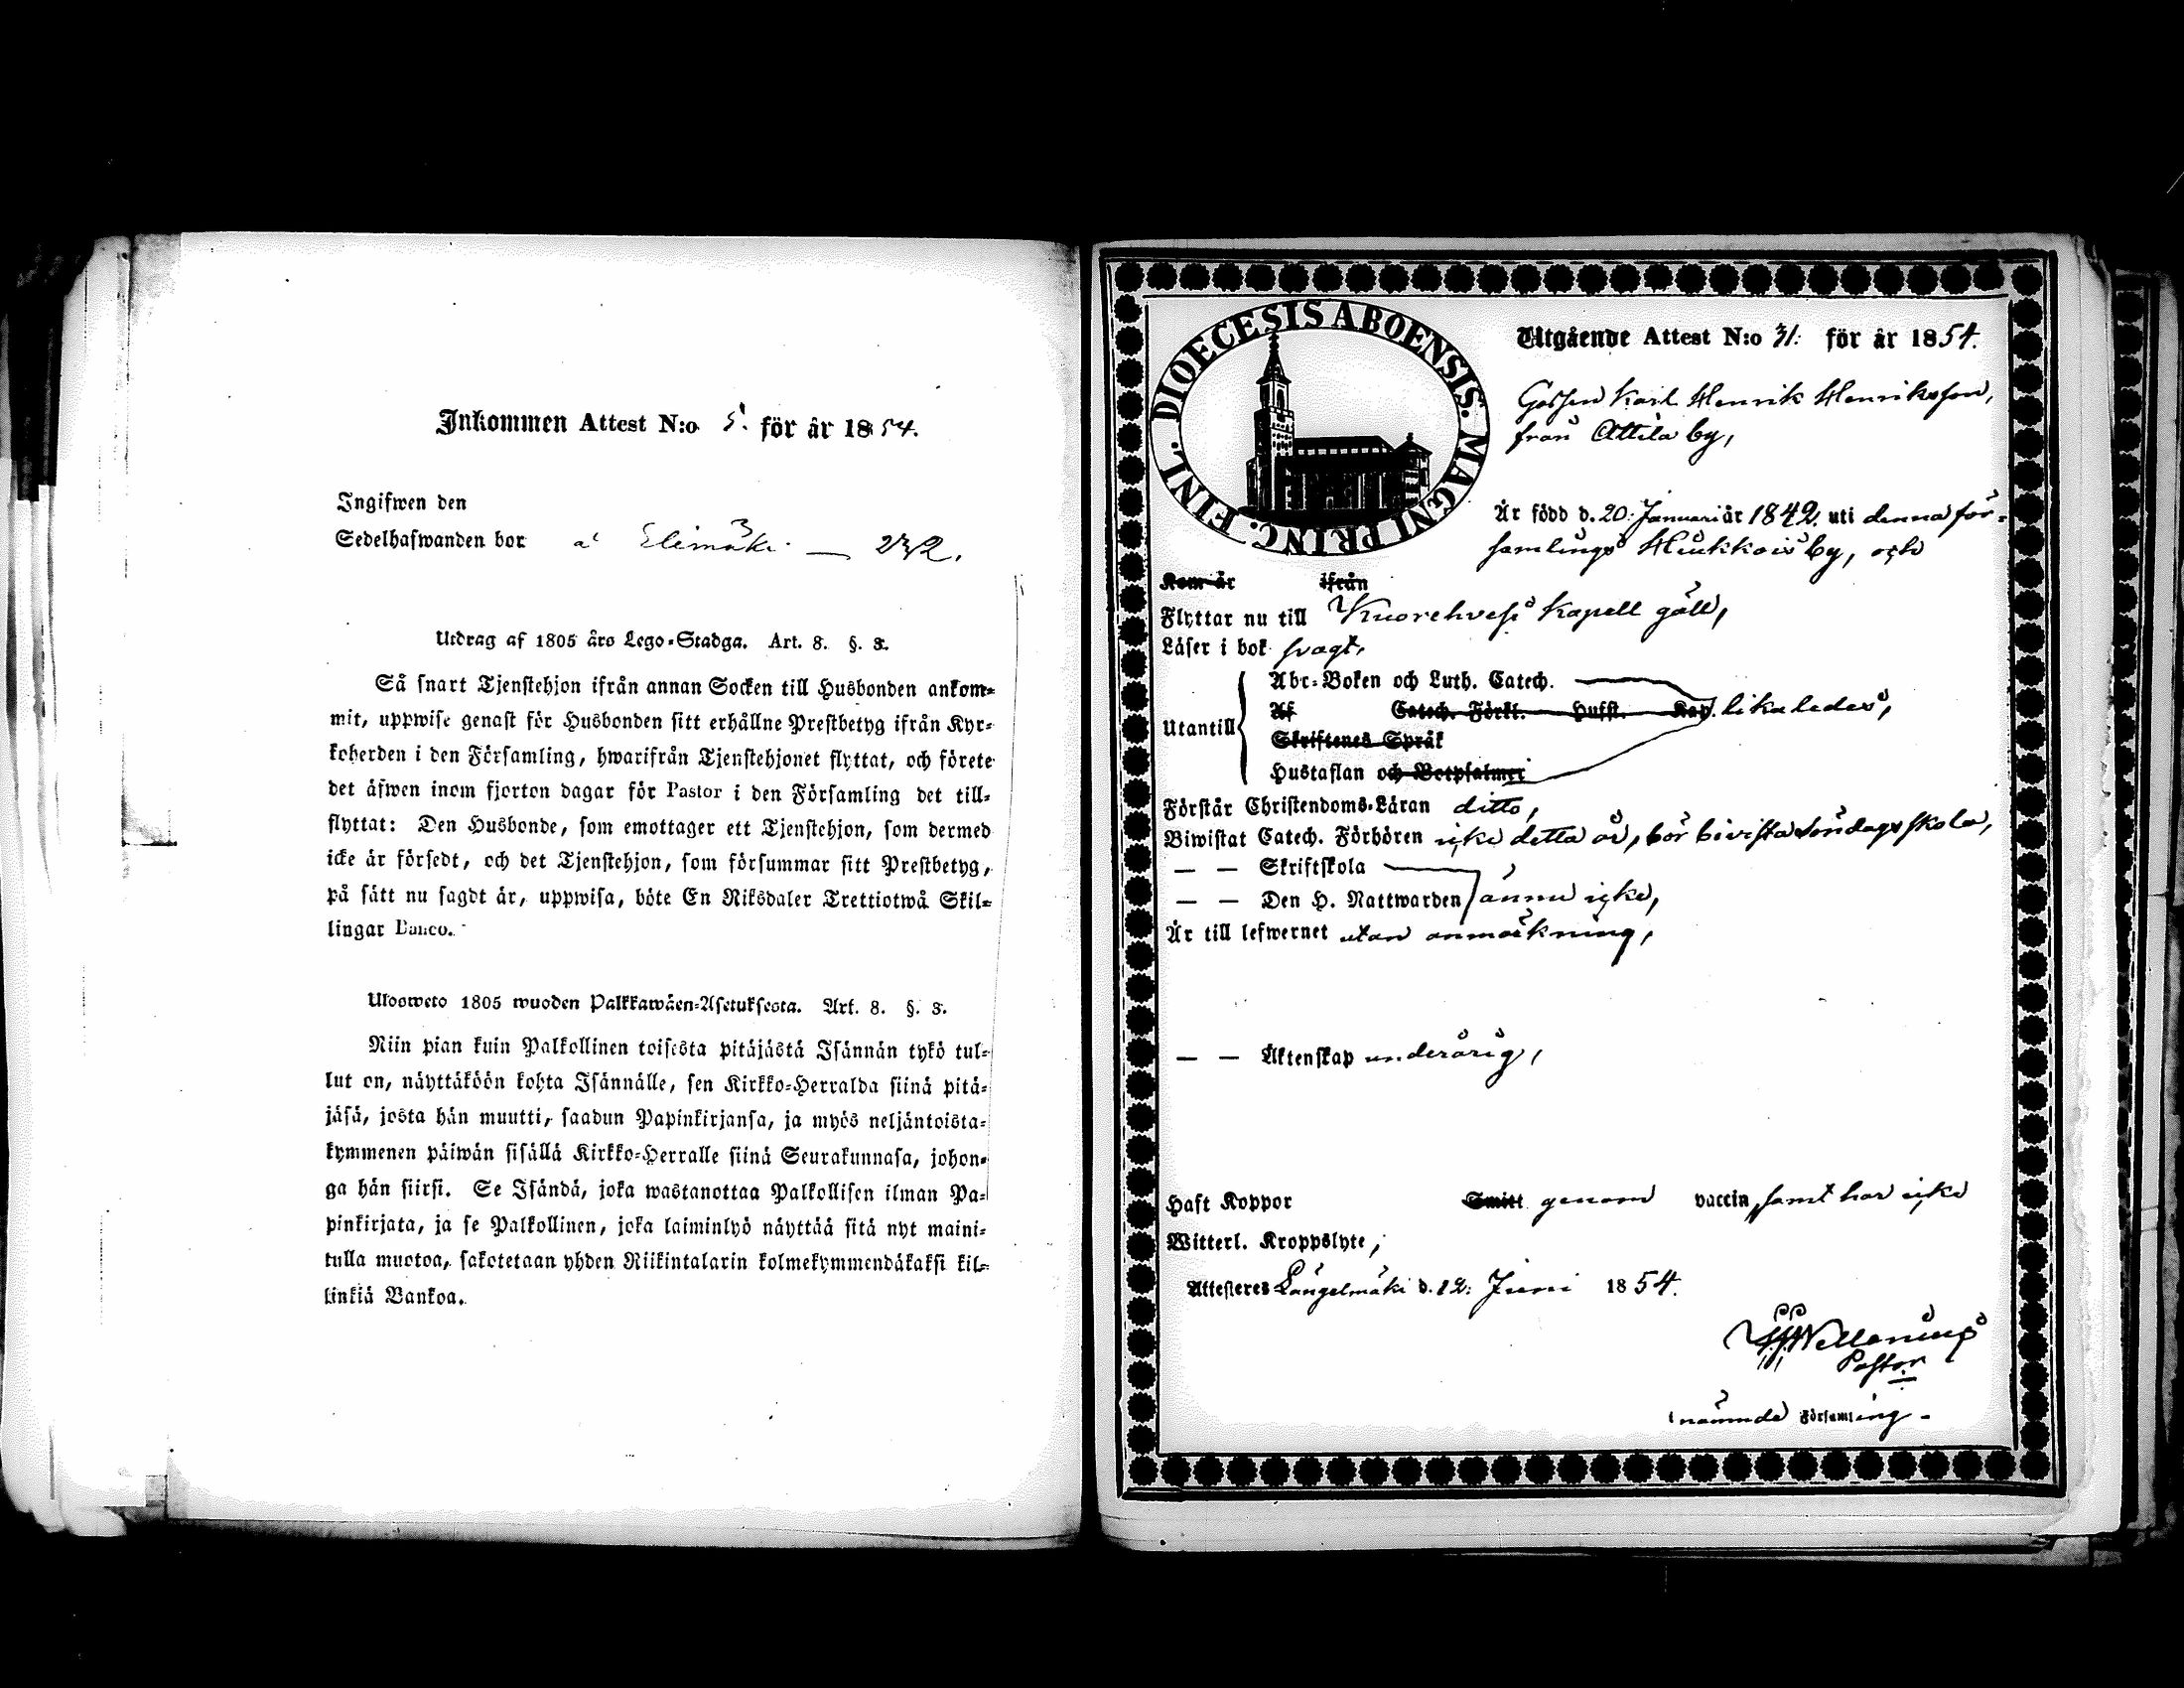 Inkommen Attest N:o 5. för år 1854.
Ingifwen den
Sedelhafwanden bor a' Elimäki — 232.
Utdrag af 1805 års Lego-Stadga. Art. 8. §. 3.
Så snart Tjenstehjon ifrån annan Socken till Husbonden ankom-
mit, uppwise genast för Husbonden sitt erhållne Prestbetyg ifrån Kyr-
koherden i den Församling, hwarifrån Tjenstehjonet flyttat, och förete
det äfwen inom fjorton dagar för Pastor i den Församling det till-
flyttat: Den Husbonde, som emottager ett Tjenstehjon, som dermed
icke är försedt, och det Tjenstehjon, som försummar sitt Prestbetyg,
på sätt nu sagdt är, uppwisa, böte En Riksdaler Trettiotwå Skil-
lingar Banco.
Ulosweto 1805 wuoden Palkkawäen-Asetuksesta. Art. 8. §. 3.
Niin pian kuin Palkollinen toisesta pitäjästä Isännän tykö tul-
lut on, näyttäköön kohta Isännälle, sen Kirkko-Herralda siinä pitä-
jäsä, josta hän muutti, saadun Papinkirjansa, ja myös neljäntoista-
kymmenen päiwän sisällä Kirkko-Herralle siinä Seurakunnasa, johon-
ga hän siirsi. Se Isändä, joka wastanottaa Palkollisen ilman Pa-
pinkirjata, ja se Palkollinen, joka laiminlyö näyttää sitä nyt maini-
tulla muotoa, sakotetaan yhden Riikintalarin kolmekymmendäkaksi kil-
linkiä Bankoa.
DIOECESIS ABOENSIS. MAGNI PRINC. FINL.
Utgående Attest N:o 31. för år 1854.
Gossen Karl Henrik Henriksson,
från Attila by,
Är född d. 20. Januari år 1842. uti denna för-
samlings Heukkois by, och
Kom år ifrån
Flyttar nu till Kuorehvesi Kapell gäll,
Läser i bok svagt,
Utantill
Abc-Boken och Luth. Catech.
Af Catech. Förkl. Hufst. Kap. likaledes,
Skriftenes Språk
Hustaflan och Botpsalmer
Förstår Christendoms-Läran ditto,
Biwistat Catech. Förhören icke detta år, bör bivista Söndags skola,
— — Skriftskola
— — Den H. Nattwarden ännu icke,
Är till lefwernet utan anmärkning,
— — Äktenskap underårig,
Haft Koppor Smitt genom vaccin, samt har icke
Witterl. Kroppslyte,
Attesteres Längelmäki d. 12. Juni 1854.
Pastor
nämnde Församling.